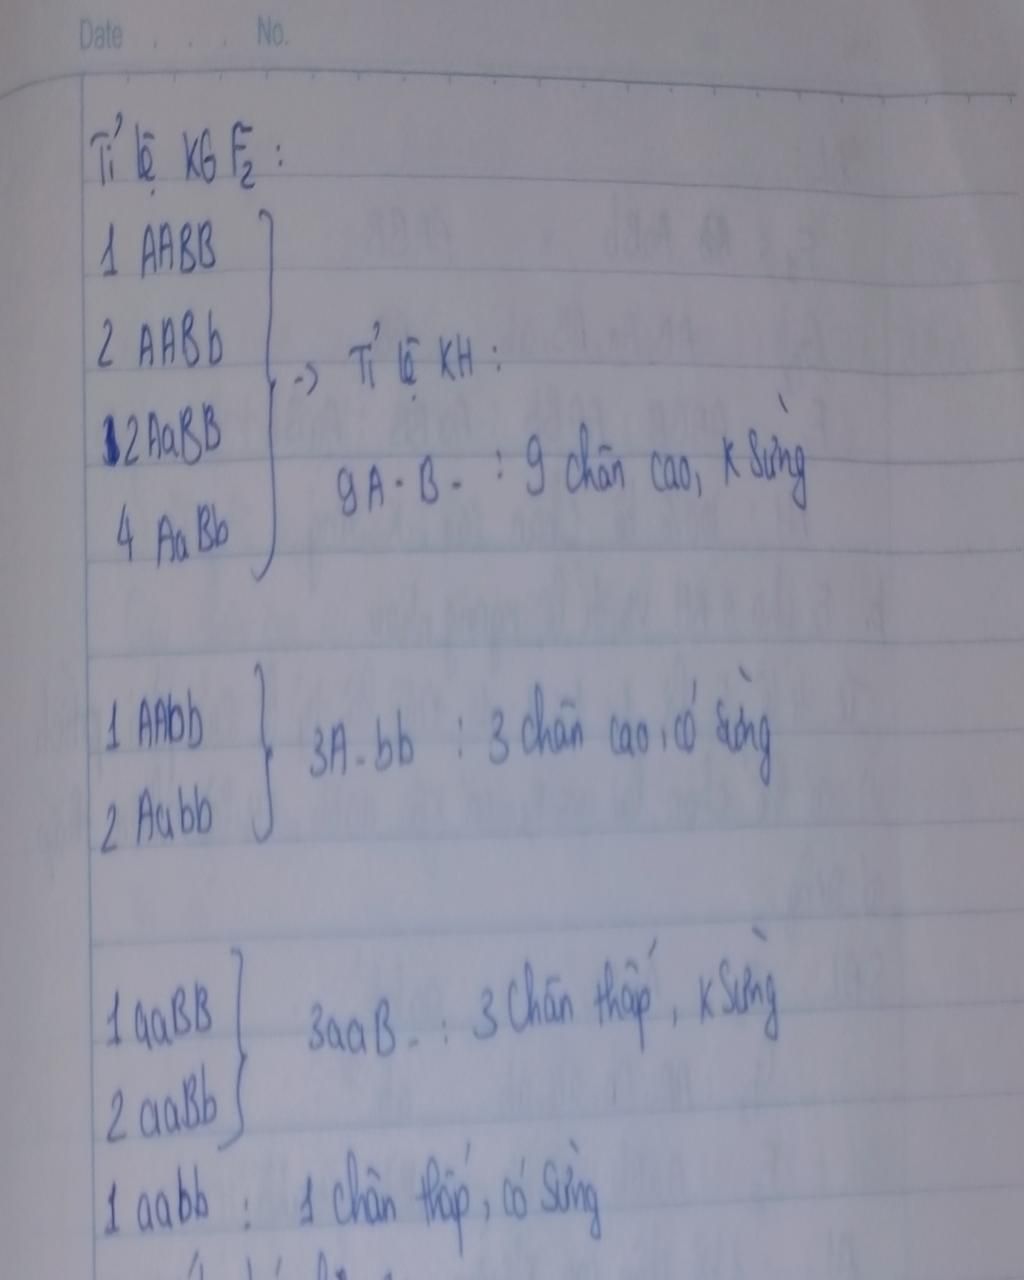 Date . . . . No.
Tỉ lệ KG F2 :
1 AABB
2 AABb
2 AaBB
4 AaBb
-> Tỉ lệ KH :
9 A-B- : 9 chân cao, k sừng
1 AAbb
2 Aabb
3A-bb : 3 chân cao, có sừng
1 aaBB
2 aaBb
3aaB- : 3 chân thấp, k sừng
1 aabb : 1 chân thấp, có sừng